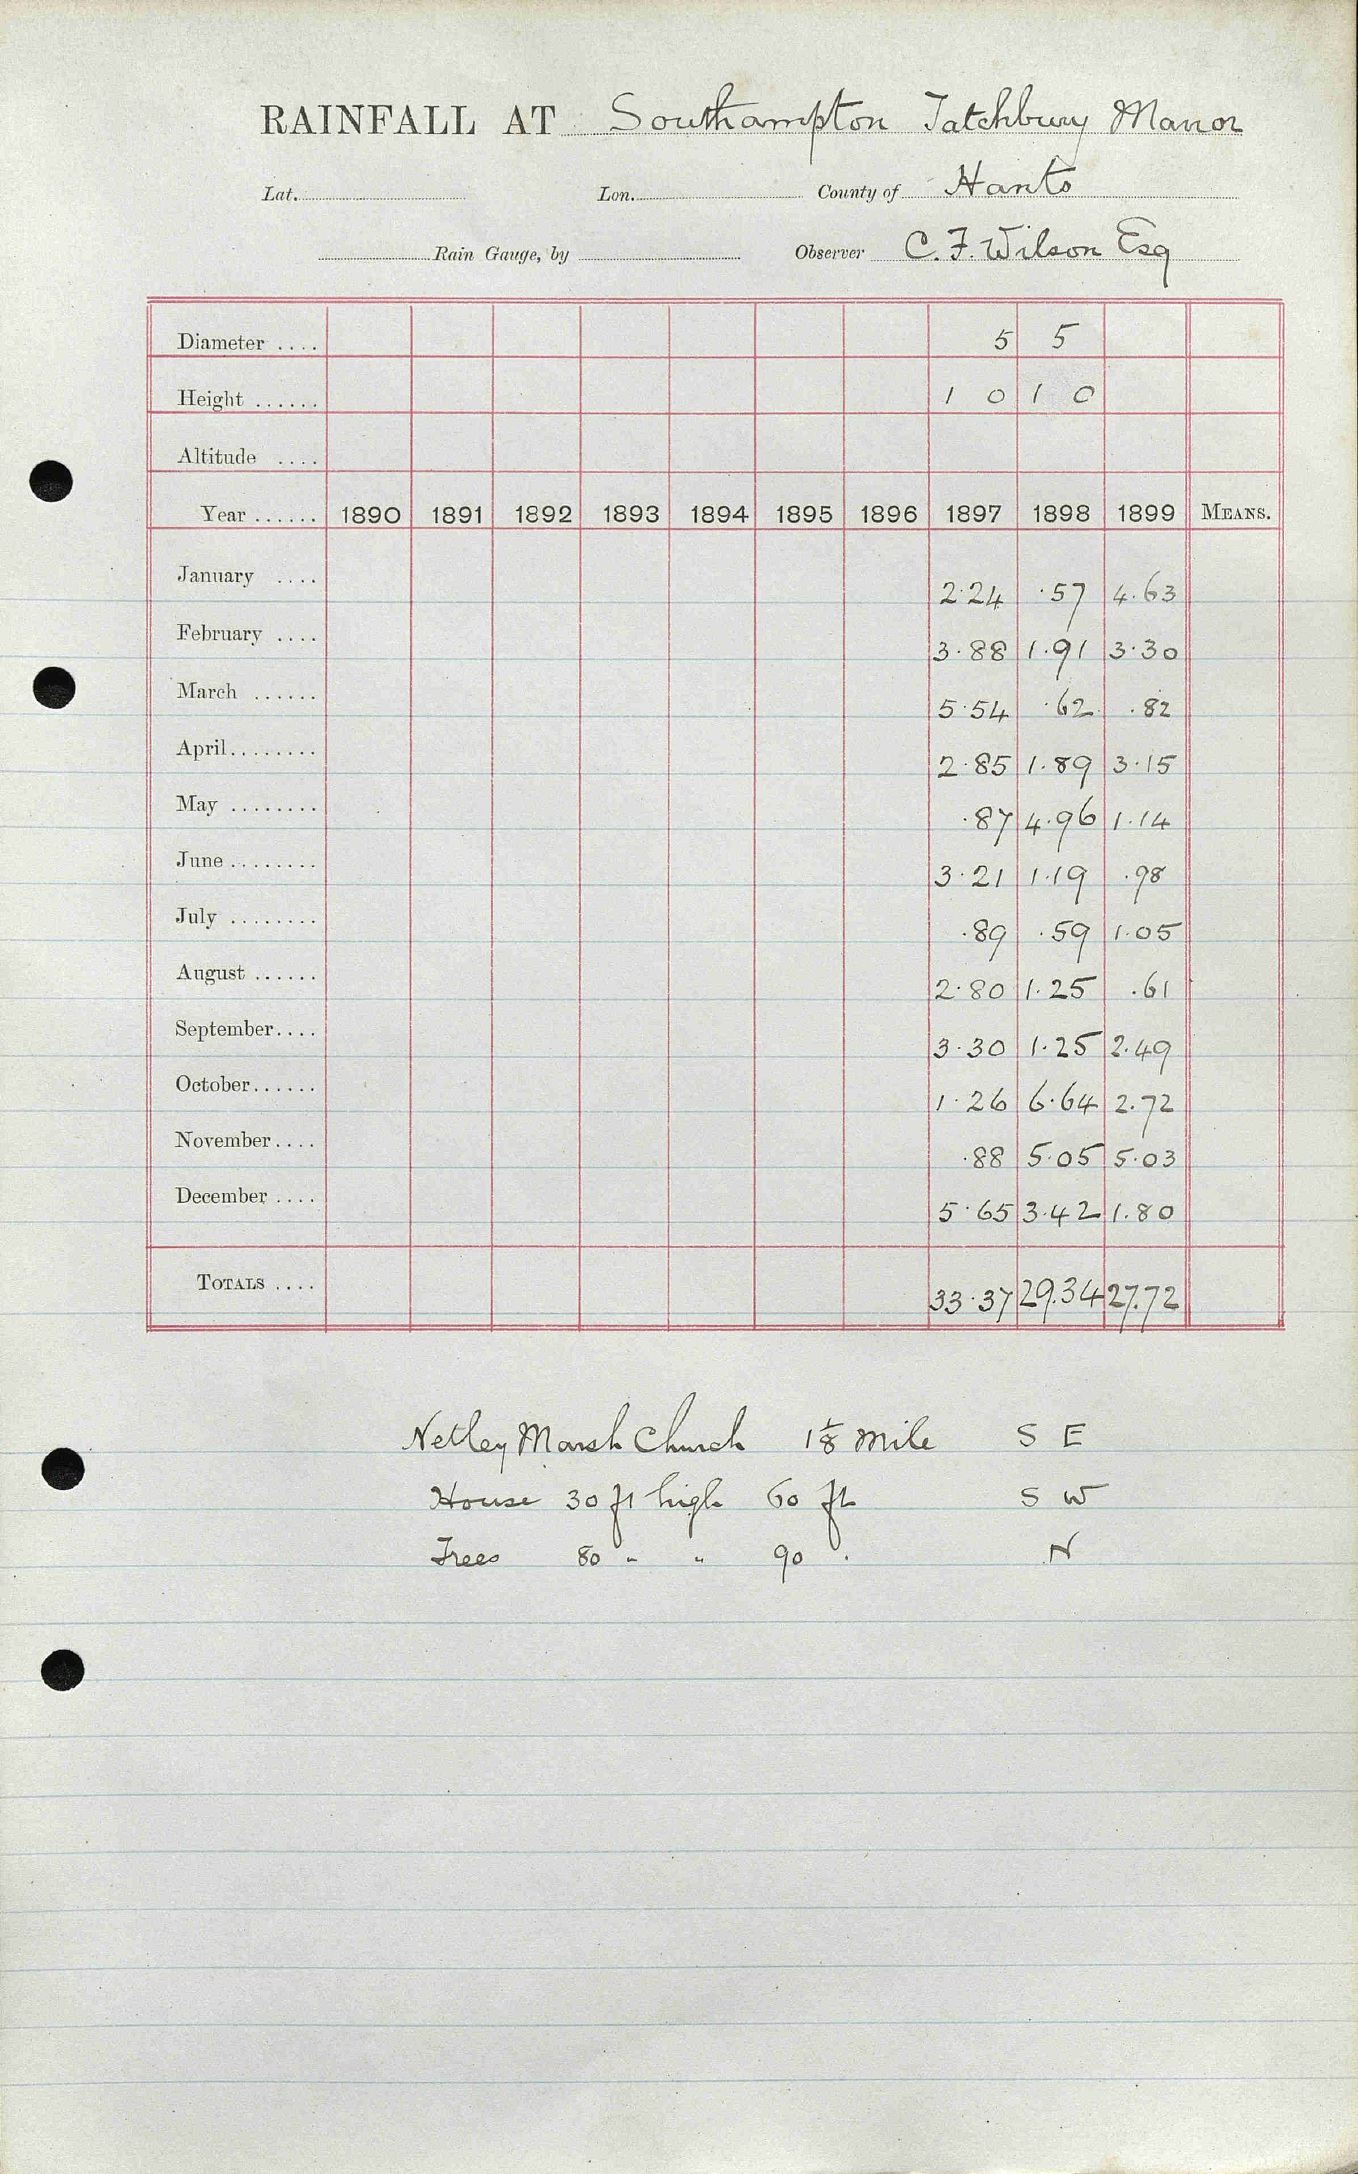 RAINFALL AT Southampton Tatchbury Manor
Lat. Lon. County of Hants
Rain Gauge, by Observer C. F. Wilson Esq
Diameter .... 5 5
Height ...... 1 0 1 0
Altitude ....
Year ...... 1890 1891 1892 1893 1894 1895 1896 1897 1898 1899 MEANS.
January .... 2.24 .57 4.63
February .... 3.88 1.91 3.30
March ...... 5.54 .62 .82
April ........ 2.85 1.89 3.15
May ........ .87 4.96 1.14
June ........ 3.21 1.19 .98
July ........ .89 .59 1.05
August ...... 2.80 1.25 .61
September .... 3.30 1.25 2.49
October ...... 1.26 6.64 2.72
November .... .88 5.05 5.03
December .... 5.65 3.42 1.80
TOTALS .... 33.37 29.34 27.72
Netley Marsh Church 1⅛ mile S E
House 30 ft high 60 ft S W
Trees 80 " " 90 . N